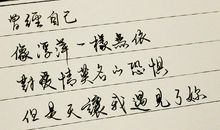 曾經自己
像浮萍一樣無依
對愛情莫名的恐懼
但是天讓我遇見了妳